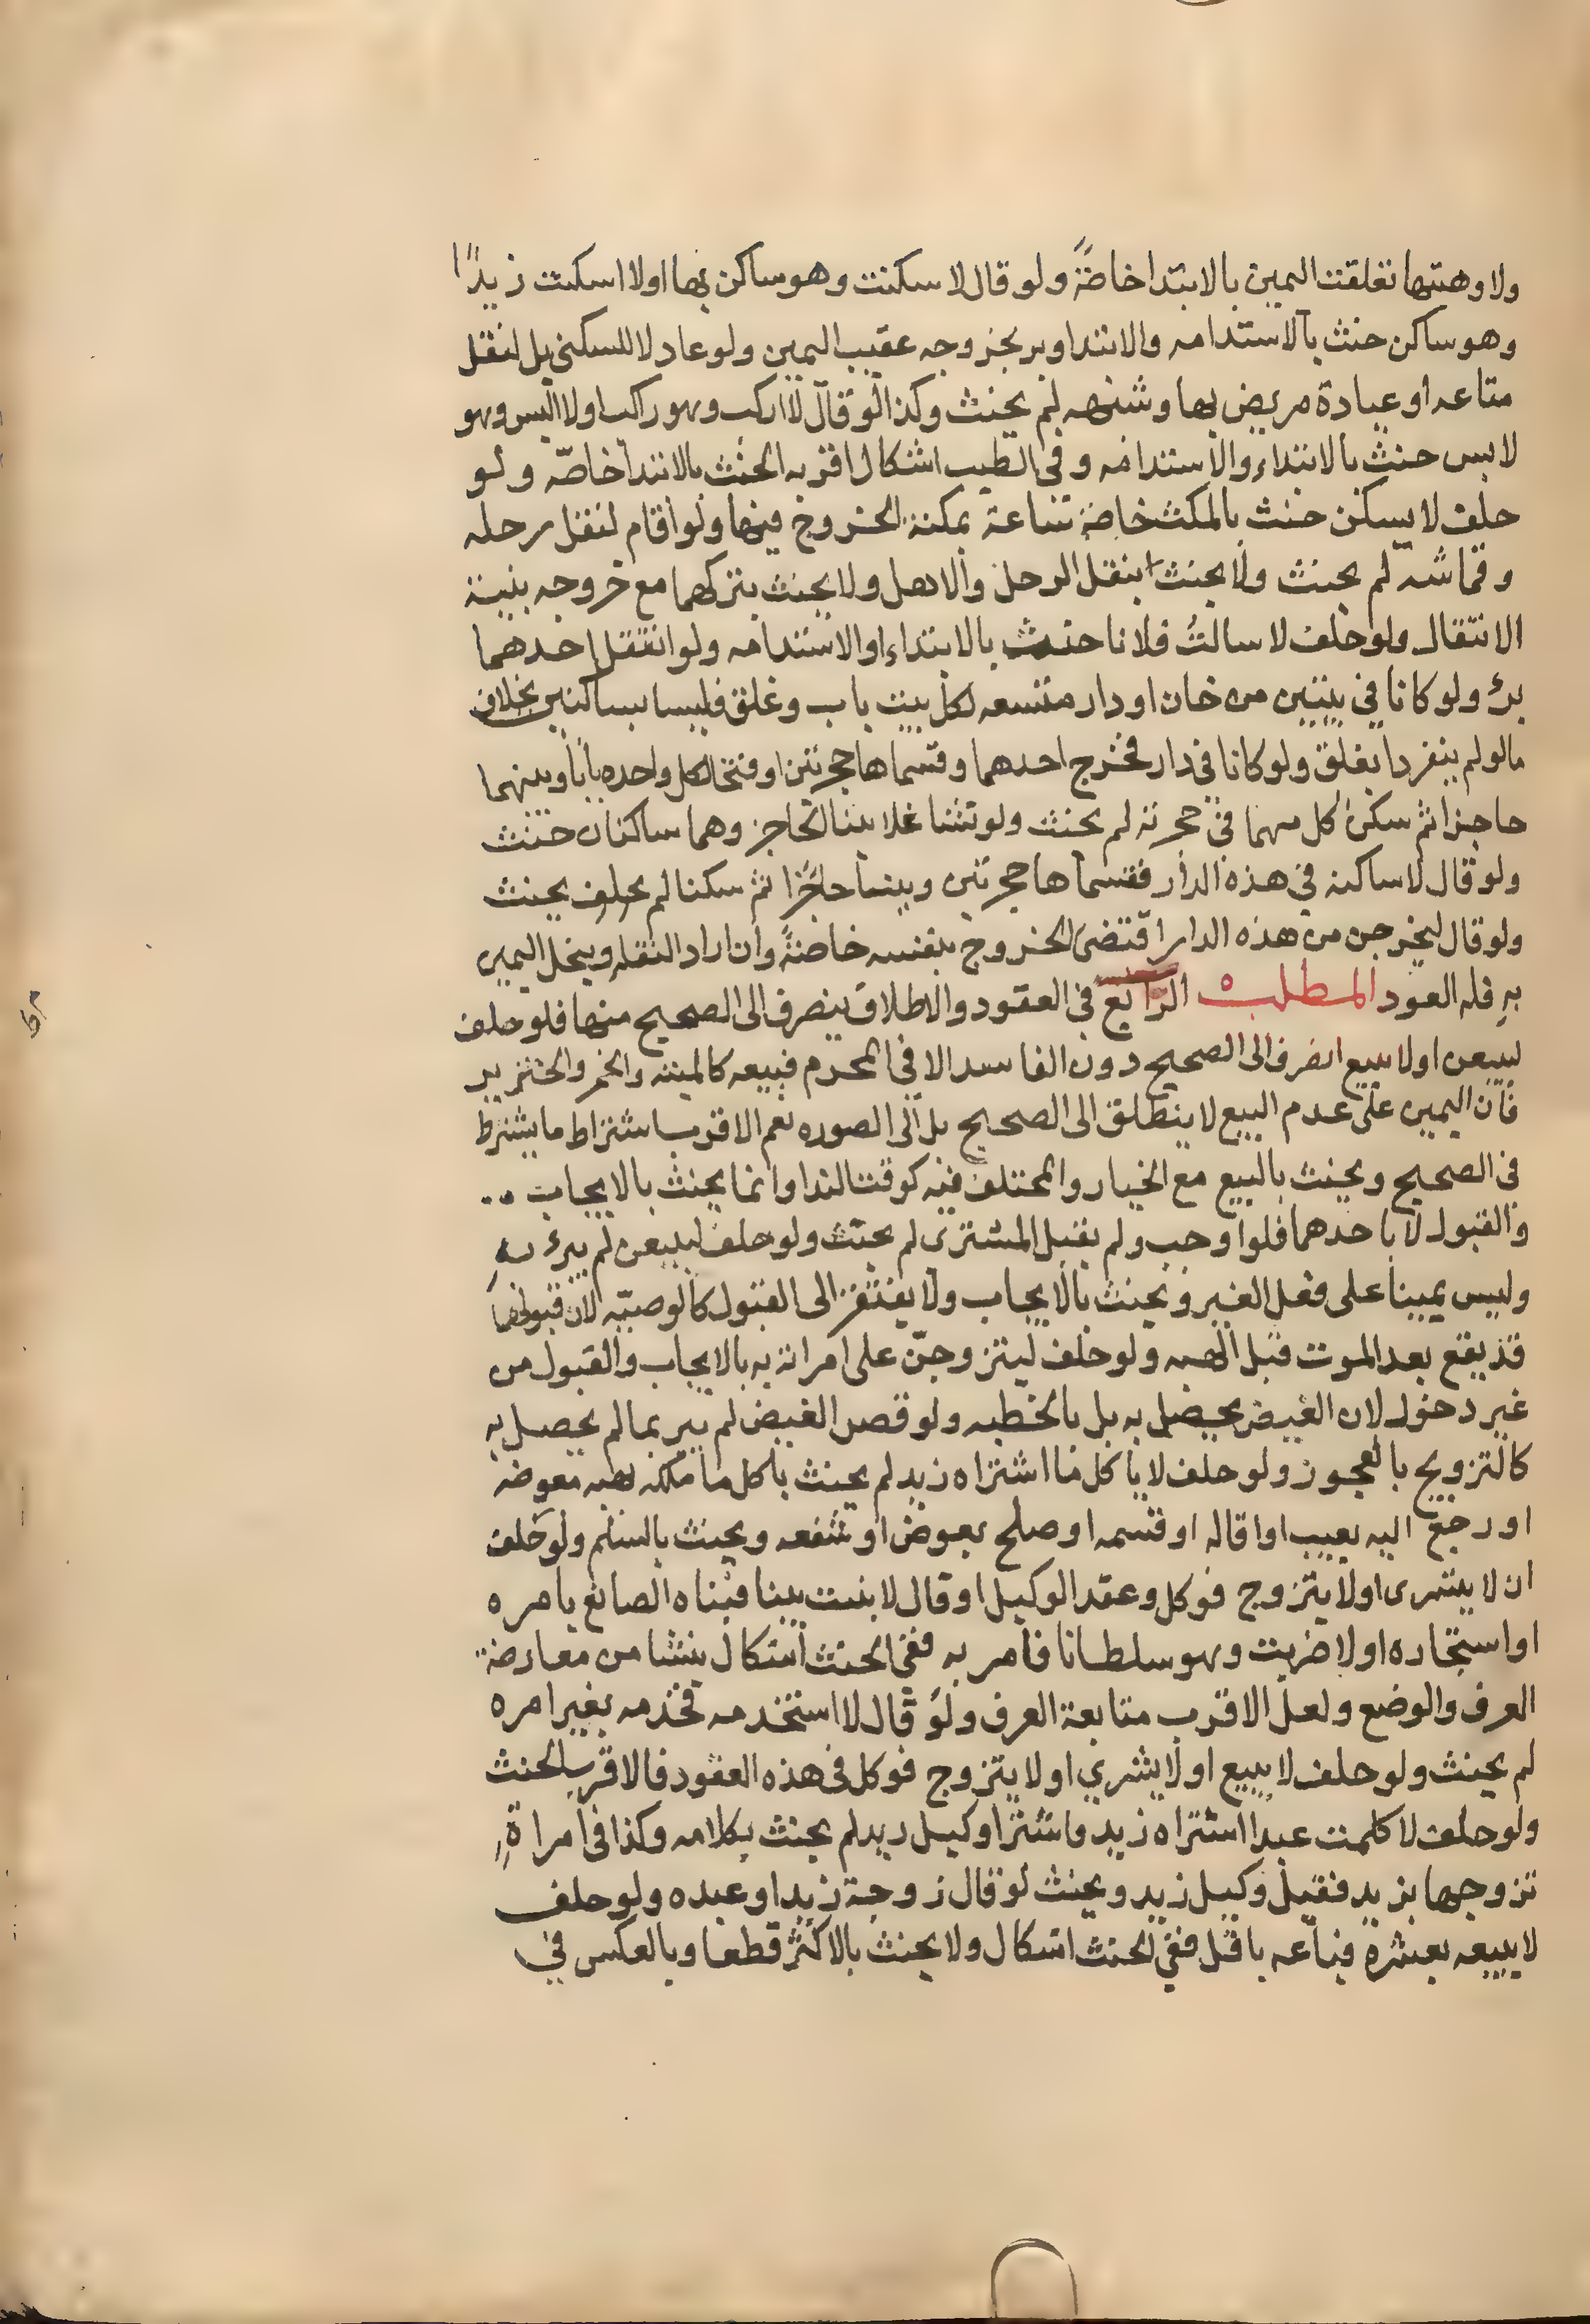 ولا وهبتها تعلقت اليمين بالابتدا خاصةً ولو قال لا سكنت وهو ساكن بها او لا اسكنت زيدًا
وهو ساكن حنث بالاستدامه والابتدا ويبر بخروجه عقيب اليمين ولو عاد لا للسكنى بل لنقل
متاعه او عيادة مريض بها وشبهه لم يحنث وكذا لو قال لا اركب وهو راكب او لا البس وهو
لابس حنث بالابتداء والاستدامه وفى الطيب اشكال اقربه الحنث بالابتدا خاصّه ولو
حلف لا يسكن حنث بالمكث خاصة ساعة يمكنه الخروج فيها ولو اقام لنقل رحله
وقماشه لم يحنث ولا يحنث بنقل الرحل والاهل ولا يحنث بتركهما مع خروجه بنية
الانتقال ولو حلف لا سالتُ فلانا حنث بالابتداء او الاستدامه ولو انتقل احدهما
برُ ولو كانا في بيتين من خان او دار متسعه لكل بيت باب وغلق فليسا بساكنين بخلاف
مالو لم ينفردا بغلق ولو كانا في دار فخرج احدهما وقسماها حجرتين او فتحا لكل واحده باباً وبينهما
حاجزا ثم سكن كل منهما في حجرته لم يحنث ولو تشاغلا ببنا الحاجز وهما ساكنان حنث
ولو قال لا ساكنته في هذه الدار فقسماها حجرتين وبينا حاجزا ثم سكنا لم يحلف يحنث
ولو قال ليخرجن من هذه الدار اقتضى الخروج بنفسه خاصةً وان اراد النقله وينحل اليمين
بهِ فله العود المطلب الرّابع في العقود والاطلاق ينصرف الى الصحيح منها فلو حلف
ليبيعن او لا يبيع انصرف الى الصحيح دون الفاسد الا في المحرم فبيعه كالميته والخمر والخنزير
فان اليمين على عدم البيع لا ينطلق الى الصحيح بل الى الصوره نعم الاقرب اشتراط ما يشترط
في الصحيح ويحنث بالبيع مع الخيار والمختلف فيه كوقت الندا وانما يحنث بالايجاب
والقبول لا باحدهما فلو اوجب ولم يقبل المشترى لم يحنث ولو حلف ليبيعن لم يبرء بهِ
وليس يمينا على فعل الغير ويحنث بالايجاب ولا يفتقر الى القبول كالوصيّه لان قبولها
قد يقع بعد الموت قبل الهبه ولو حلف ليتزوجنّ على امراته بر بالايجاب والقبول من
غير دخول لان الغيض يحصل به بل بالخطبه ولو قصر الغيض لم يبر بما لم يحصل به
كالتزويج بالعجوز ولو حلف لا ياكل ما اشتراه زيد لم يحنث باكل ما ملكه بهبه معوضه
او رجع اليه بعيب او اقاله او قسمه او صلح بعوض او شفعه ويحنث بالسلم ولو حلف
ان لا يشترى او لا يتزوج فوكل وعقد الوكيل او قال لا بنيت بيتا فبناه الصانع يامره
او استجاره او لا ضربت وهو سلطانا فامر به ففي الحنث اشكال ينشا من معارضة
العرف والوضع ولعل الاقرب متابعة العرف ولو قال لا استخدمه فخدمه بغير امره
لم يحنث ولو حلف لا يبيع او لا يشري او لا يتزوج فوكل في هذه العقود فالاقرب الحنث
ولو حلف لا كلمت عبدا اشتراه زيد فاشترا وكيل زيد لم يحنث بكلامه وكذا في امراةٍ
تزوجها بزيد فقبل وكيل زيد ويحنث لو قال زوجة زيد او عبده ولو حلف
لا يبيعه بعشرة فباعه باقل ففي الحنث اشكال ولا يحنث بالاكثر قطعا وبالعكس في